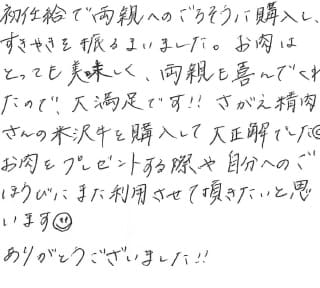 初任給で両親へのごちそうに購入し、
すきやきを振るまいました。お肉は
とっても美味しく、両親も喜んでくれ
たので、大満足です!! さがえ精肉
さんの米沢牛を購入して大正解でした☺
お肉をプレゼントする際や自分へのご
ほうびにまた利用させて頂きたいと思
います☺
ありがとうございました!!